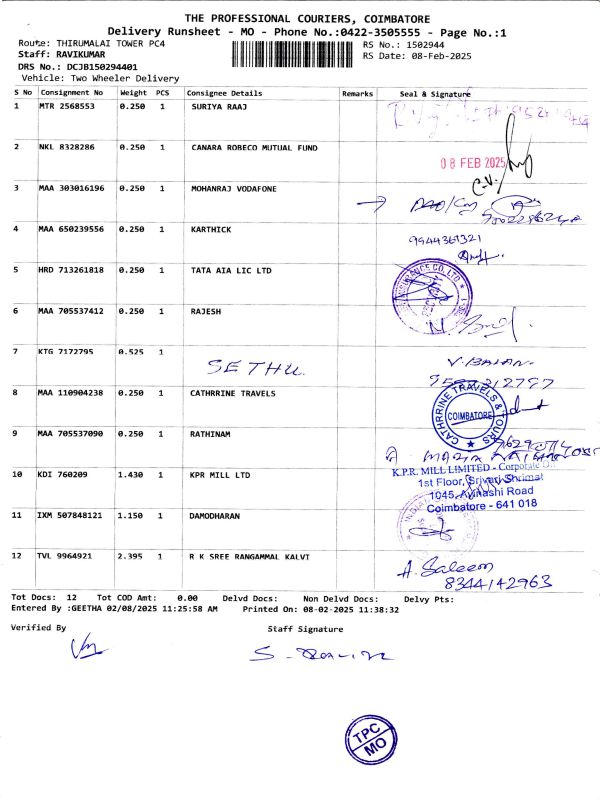 THE PROFESSIONAL COURIERS, COIMBATORE
Delivery Runsheet - MO - Phone No.:0422-3505555 - Page No.:1
Route: THIRUMALAI TOWER PC4 RS No.: 1502944
Staff: RAVIKUMAR RS Date: 08-Feb-2025
DRS No.: DCJB150294401
Vehicle: Two Wheeler Delivery
S No Consignment No Weight PCS Consignee Details Remarks Seal & Signature
1 MTR 2568553 0.250 1 SURIYA RAAJ
2 NKL 8328286 0.250 1 CANARA ROBECO MUTUAL FUND
08 FEB 2025
C.V.
3 MAA 303016196 0.250 1 MOHANRAJ VODAFONE
4 MAA 650239556 0.250 1 KARTHICK
9944361321
5 HRD 713261818 0.250 1 TATA AIA LIC LTD
6 MAA 705537412 0.250 1 RAJESH
7 KTG 7172795 0.525 1
SETHU V. BALAN
8 MAA 110904238 0.250 1 CATHRRINE TRAVELS
CATHRRINE TRAVELS & TOURS
COIMBATORE
9 MAA 705537090 0.250 1 RATHINAM
10 KDI 760209 1.430 1 KPR MILL LTD
K.P.R. MILL LIMITED - Corporate
1st Floor, Srivari Shrimat
1045, Avinashi Road
Coimbatore - 641 018
11 IXM 507848121 1.150 1 DAMODHARAN
12 TVL 9964921 2.395 1 R K SREE RANGAMMAL KALVI
A. Saleem
8344142963
Tot Docs: 12 Tot COD Amt: 0.00 Delvd Docs: Non Delvd Docs: Delvy Pts:
Entered By :GEETHA 02/08/2025 11:25:58 AM Printed On: 08-02-2025 11:38:32
Verified By Staff Signature
TPC
MO